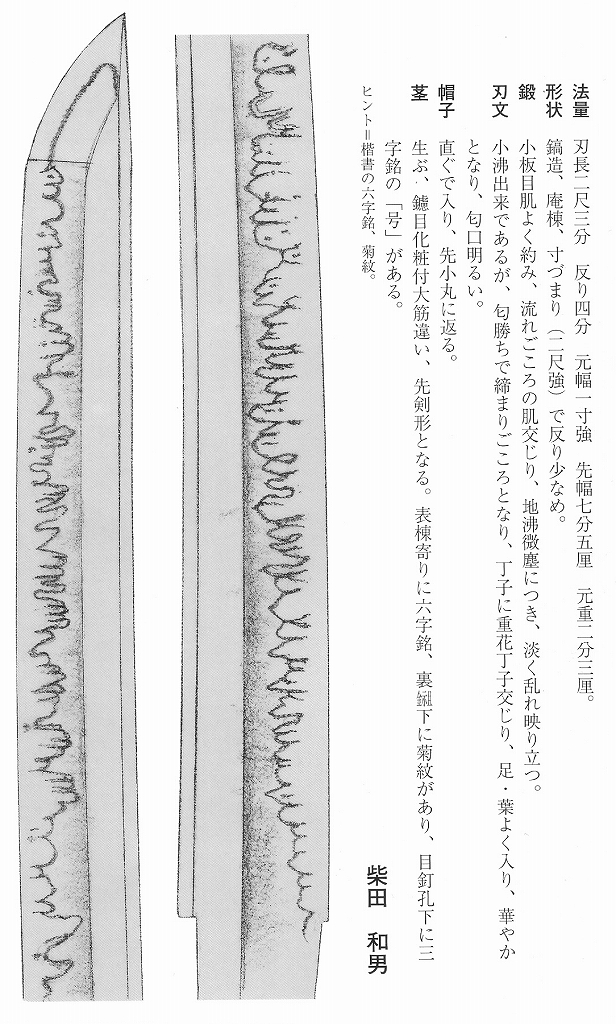 法量 刃長二尺三分 反り四分 元幅一寸強 先幅七分五厘 元重二分三厘。
形状 鎬造、庵棟、寸づまり(二尺強)で反り少なめ。
鍛 小板目肌よく約み、流れごころの肌交じり、地沸微塵につき、淡く乱れ映り立つ。
刃文 小沸出来であるが、匂勝ちで締まりごころとなり、丁子に重花丁子交じり、足・葉よく入り、華やか
となり、匂口明るい。
帽子 直ぐで入り、先小丸に返る。
茎 生ぶ、鑢目化粧付大筋違い、先剣形となる。表棟寄りに六字銘、裏鎺下に菊紋があり、目釘孔下に三
字銘の「号」がある。
ヒント=楷書の六字銘、菊紋。
柴田 和男